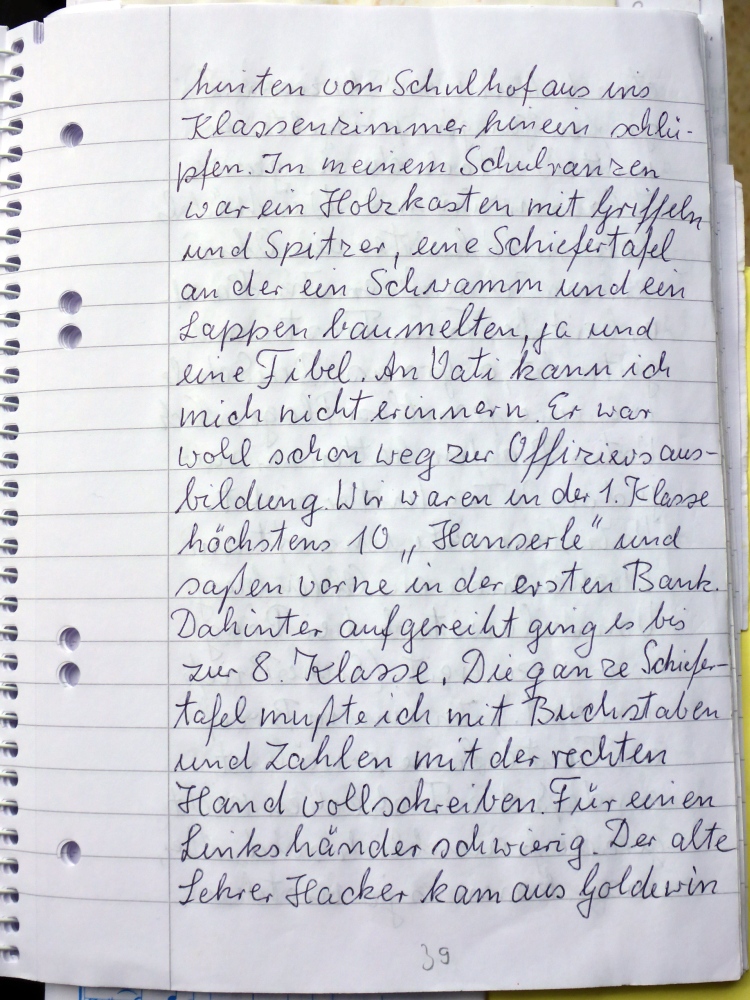 hinten vom Schulhof aus ins
Klassenzimmer hinein schlü-
pfen. In meinem Schulranzen
war ein Holzkasten mit Griffeln
und Spitzer, eine Schiefertafel
an der ein Schwamm und ein
Lappen baumelten, ja und
eine Fibel. An Vati kann ich
mich nicht erinnern. Er war
wohl schon weg zur Offiziersaus-
bildung. Wir waren in der 1. Klasse
höchstens 10 „Hanserle“ und
saßen vorne in der ersten Bank.
Dahinter aufgereiht ging es bis
zur 8. Klasse. Die ganze Schiefer-
tafel mußte ich mit Buchstaben
und Zahlen mit der rechten
Hand vollschreiben. Für einen
Linkshänder schwierig. Der alte
Lehrer Hacker kam aus Goldewin
39